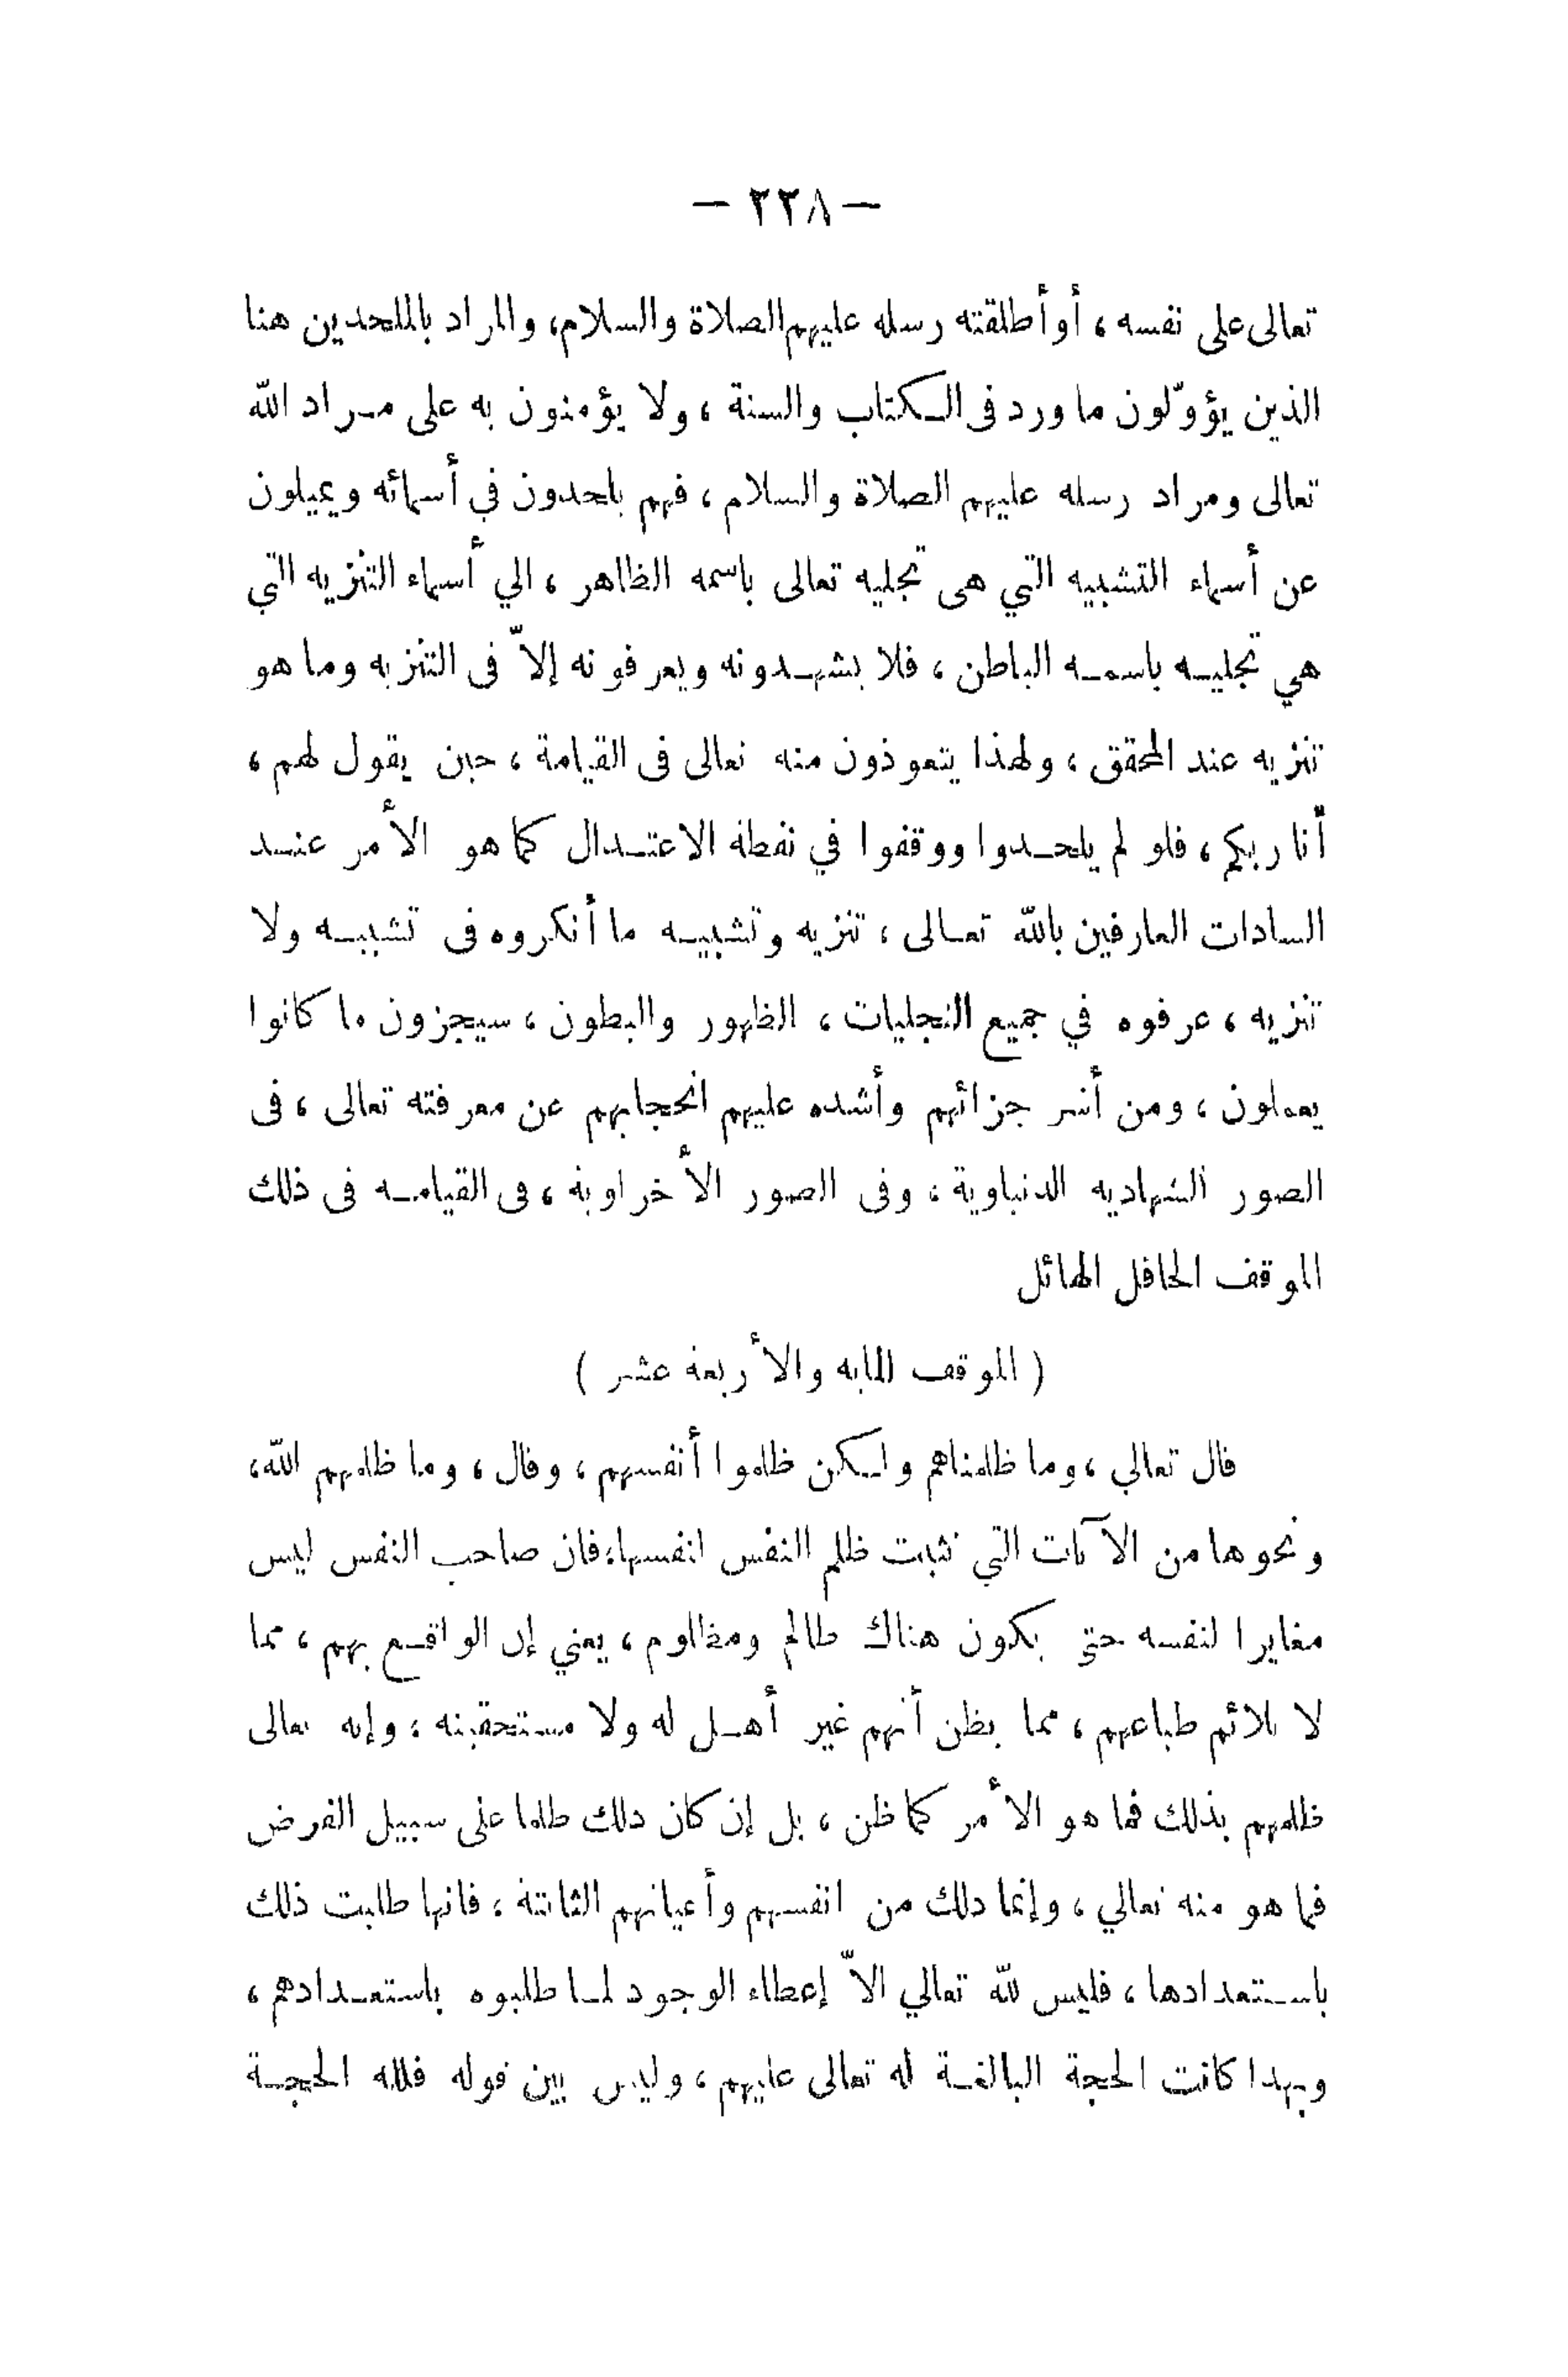 — ٢٢٨ —
تعالى على نفسه ، أو أطلقته رسله عليهم الصلاة والسلام، والمراد بالملحدين هنا
الذين يؤوّلون ما ورد فى الكتاب والسنة ، ولا يؤمنون به على مراد الله
تعالى ومراد رسله عليهم الصلاة والسلام ، فهم يلحدون في أسمائه ويميلون
عن أسماء التشبيه التي هى تجليه تعالى باسمه الظاهر ، الي أسماء التنزيه التي
هي تجليه باسمه الباطن ، فلا يشهدونه ويعرفونه إلاّ فى التنزيه وما هو
تنزيه عند المحقق ، ولهذا يتعوذون منه تعالى فى القيامة ، حين يقول لهم ،
أنا ربكم ، فلو لم يلحدوا ووقفوا في نقطة الاعتدال كما هو الأمر عند
السادات العارفين بالله تعالى ، تنزيه وتشبيه ما أنكروه فى تشبيه ولا
تنزيه ، عرفوه في جميع التجليات ، الظهور والبطون ، سيجزون ما كانوا
يعملون ، ومن أشر جزائهم وأشده عليهم انحجابهم عن معرفته تعالى ، فى
الصور الشهاديه الدنياوية ، وفى الصور الأخراوية ، فى القيامه فى ذلك
الموقف الحافل الهائل
( الموقف المايه والأربعة عشر )
قال تعالي ، وما ظلمناهم ولكن ظلموا أنفسهم ، وقال ، وما ظلمهم الله،
ونحوها من الآيات التي تثبت ظلم النفس انفسها، فان صاحب النفس ليس
مغايرا لنفسه حتى يكون هناك ظالم ومظلوم ، يعني إن الواقع بهم ، مما
لا يلائم طباعهم ، مما يظن أنهم غير أهل له ولا مستحقينه ، وإنه تعالى
ظلمهم بذلك فما هو الأمر كما ظن ، بل إن كان ذلك ظلما على سبيل الفرض
فما هو منه تعالي ، وإنما ذلك من انفسهم وأعيانهم الثابتة ، فانها طلبت ذلك
باستعدادها ، فليس لله تعالي الاّ إعطاء الوجود لما طلبوه باستعدادهم ،
وبهذا كانت الحجة البالغة له تعالى عليهم ، وليس بين قوله فلله الحجة